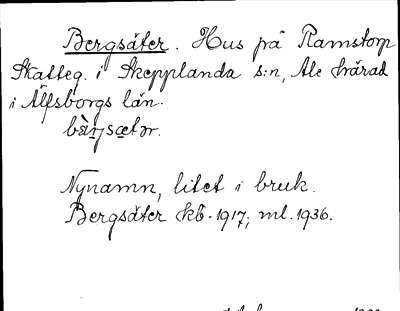 Bergsäter. Hus på Ramstorp
Skatteg. i Skepplanda s:n, Ale härad
i Älfsborgs län.
Nynamn, litet i bruk.
Bergsäter kb. 1917; ml. 1936.